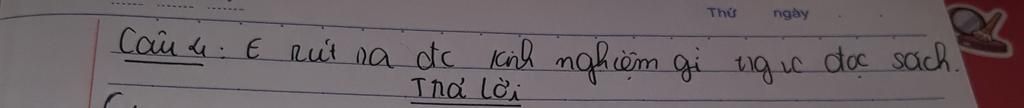 Thứ ngày
Câu 4: E rút ra đc kinh nghiệm gì đọc sách.
Trả lời